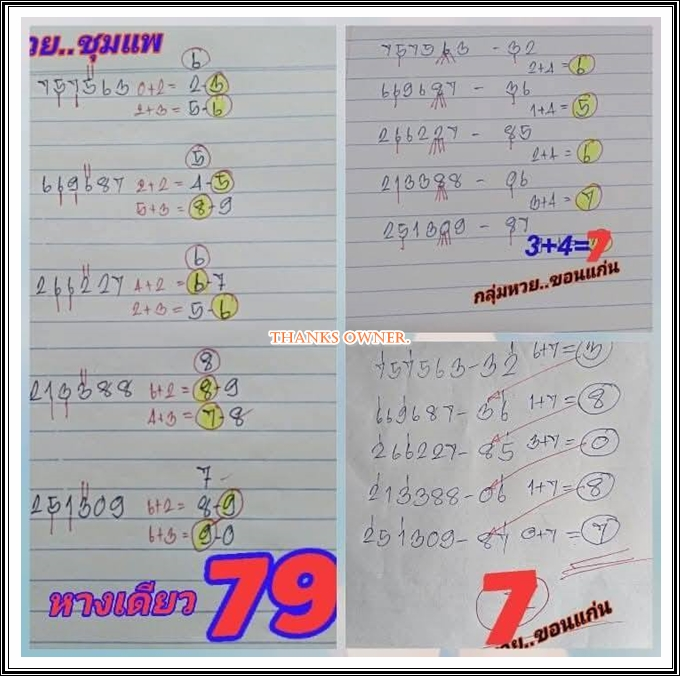 วย..ชุมแพ
6
757563 0+2= 2-3
2+3= 5-6
5
669687 2+2= 4-5
5+3= 8-9
6
266227 4+2= 6-7
2+3= 5-6
8
213388 6+2= 8-9
4+3= 7-8
7-
251309 6+2= 8-9
6+3= 9-0
หางเดียว 79
757563 - 32
2+4= 6
669687 - 36
1+4= 5
266227 - 85
2+4= 6
213388 - 06
3+4= 7
251309 - 87
3+4=7
กลุ่มหวย..ขอนแก่น
THANKS OWNER.
757563-32 6+7= 3
669687- 36 1+7= 8
266227- 85 3+7= 0
213388-06 1+7= 8
251309- 87 0+7= 7
7
วย..ขอนแก่น